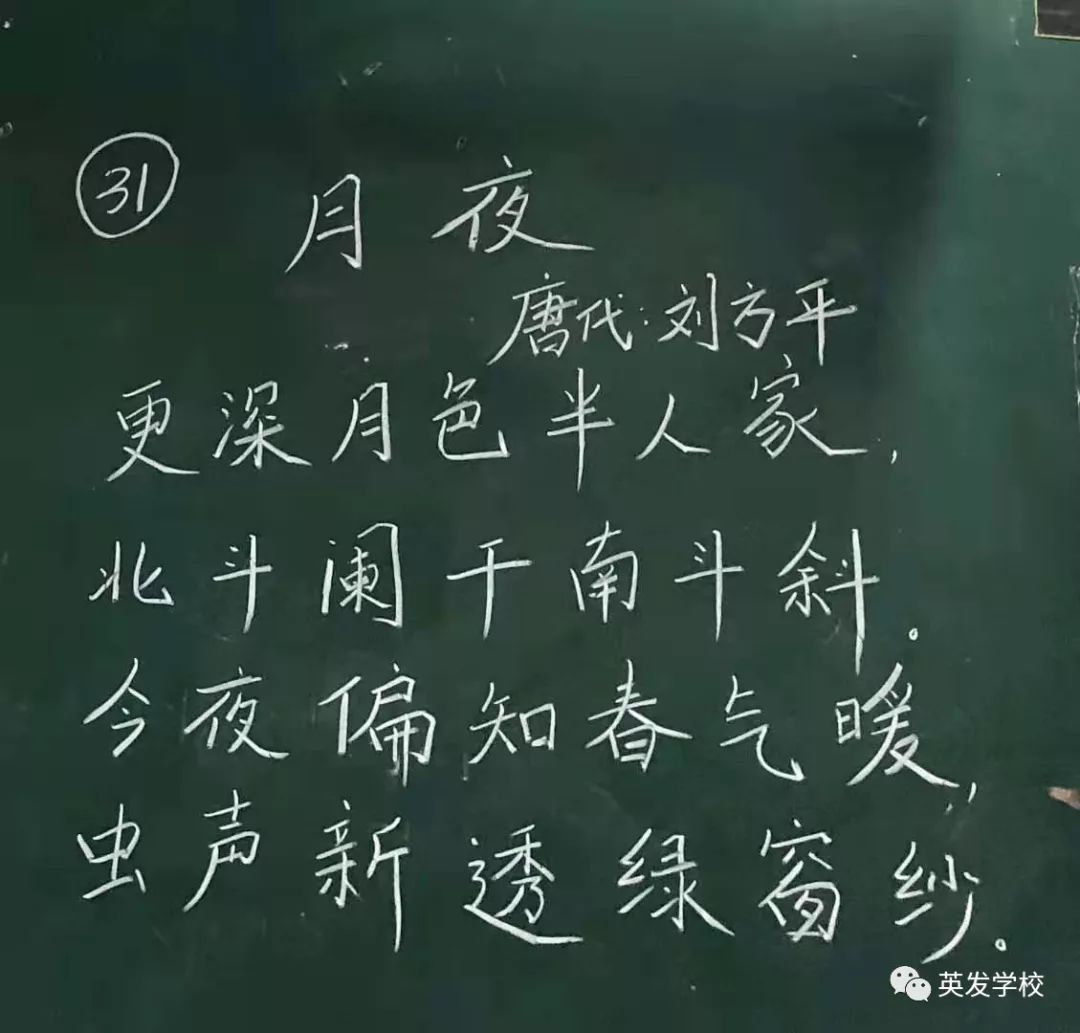 ㉛ 月夜
唐代:刘方平
更深月色半人家,
北斗阑干南斗斜。
今夜偏知春气暖,
虫声新透绿窗纱。
英发学校